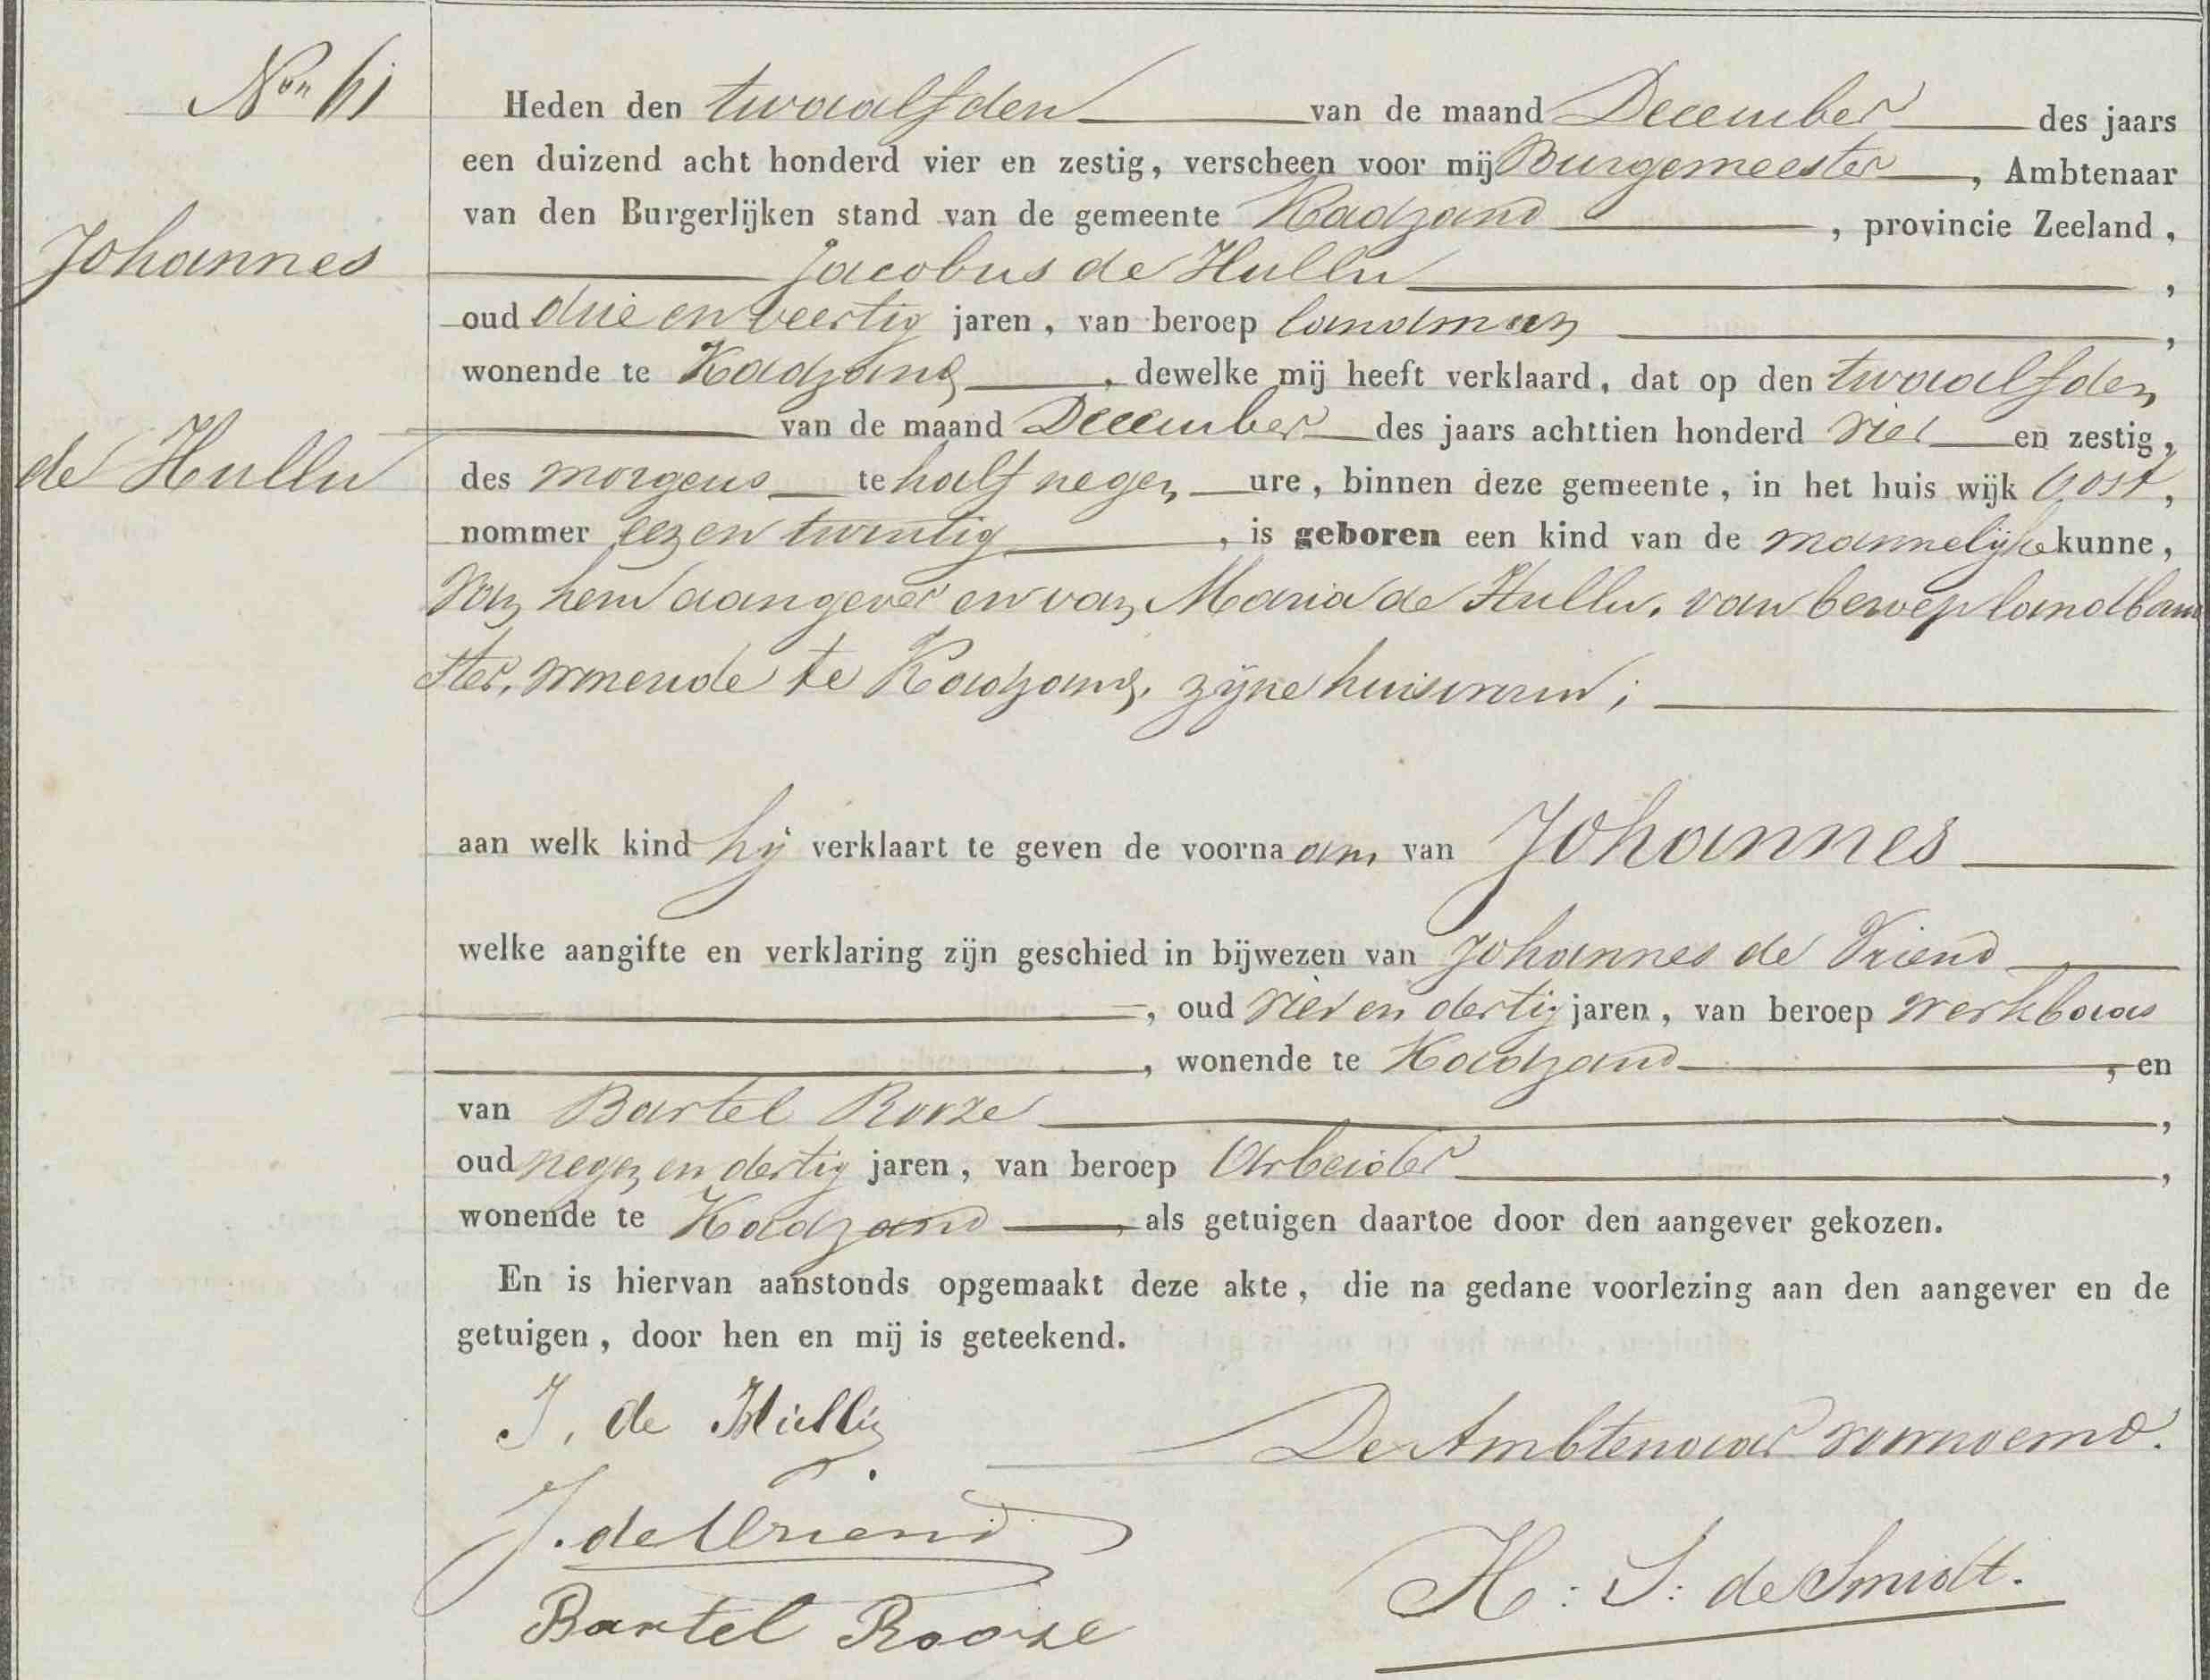 Non 61
Johannes
de Hullu
Heden den twaalfden van de maand December des jaars
een duizend acht honderd vier en zestig, verscheen voor mij Burgemeester, Ambtenaar
van den Burgerlijken stand van de gemeente Kadzand, provincie Zeeland,
Jacobus de Hullu,
oud drie en veertig jaren, van beroep landman,
wonende te Kadzand, dewelke mij heeft verklaard, dat op den twaalfden
van de maand December des jaars achttien honderd vier en zestig,
des morgens te half negen ure, binnen deze gemeente, in het huis wijk Oost,
nommer een en twintig, is geboren een kind van de mannelijke kunne,
van hem aangever en van Maria de Hullu, van beroep landbouw
ster, wonende te Kadzand, zijne huisvrouw;
aan welk kind hij verklaart te geven de voornaam van Johannes
welke aangifte en verklaring zijn geschied in bijwezen van Johannes de Vriend
, oud vier en dertig jaren, van beroep werkbaas
, wonende te Kadzand, en
van Bartel Rooze,
oud negen en dertig jaren, van beroep Arbeider,
wonende te Kadzand, als getuigen daartoe door den aangever gekozen.
En is hiervan aanstonds opgemaakt deze akte, die na gedane voorlezing aan den aangever en de
getuigen, door hen en mij is geteekend.
J. de Hullu
De Ambtenaar voornoemd.
J. de Vriend
H: J: de Smidt.
Bartel Rooze